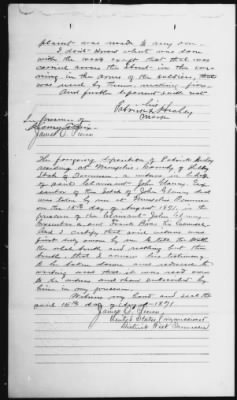 plaint was made to any one.
I don't know what was done
with the wood except that it was
carried across the street in the eve
ning in the arms of the soldiers, that
was used by them, making fires.
And further deponent saith not
his
Patrick Healey
mark
In presence of
James E.
The foregoing deposition of Patrick Healey
residing at Memphis, County of Shelby
State of Tennessee, a witness in behalf
of said Claimant John Glancy Exe
cutor of the Estate of John Glancy decd
was taken by me at Memphis Tennessee
on the 15th day of August 1871, in the
presence of the Claimant John Glancy
Executor and his Counsel
And I certify that said witness was
first duly sworn by me to state the truth
the whole truth and nothing but the
truth, that I caused his testimony
to be taken down and reduced to
writing and that it was read over
to the witness and then subscribed by
him in my presence.
Witness my hand and seal the
said 15th day of August 1871.
James E.
United States Commissioner
District West Tennessee